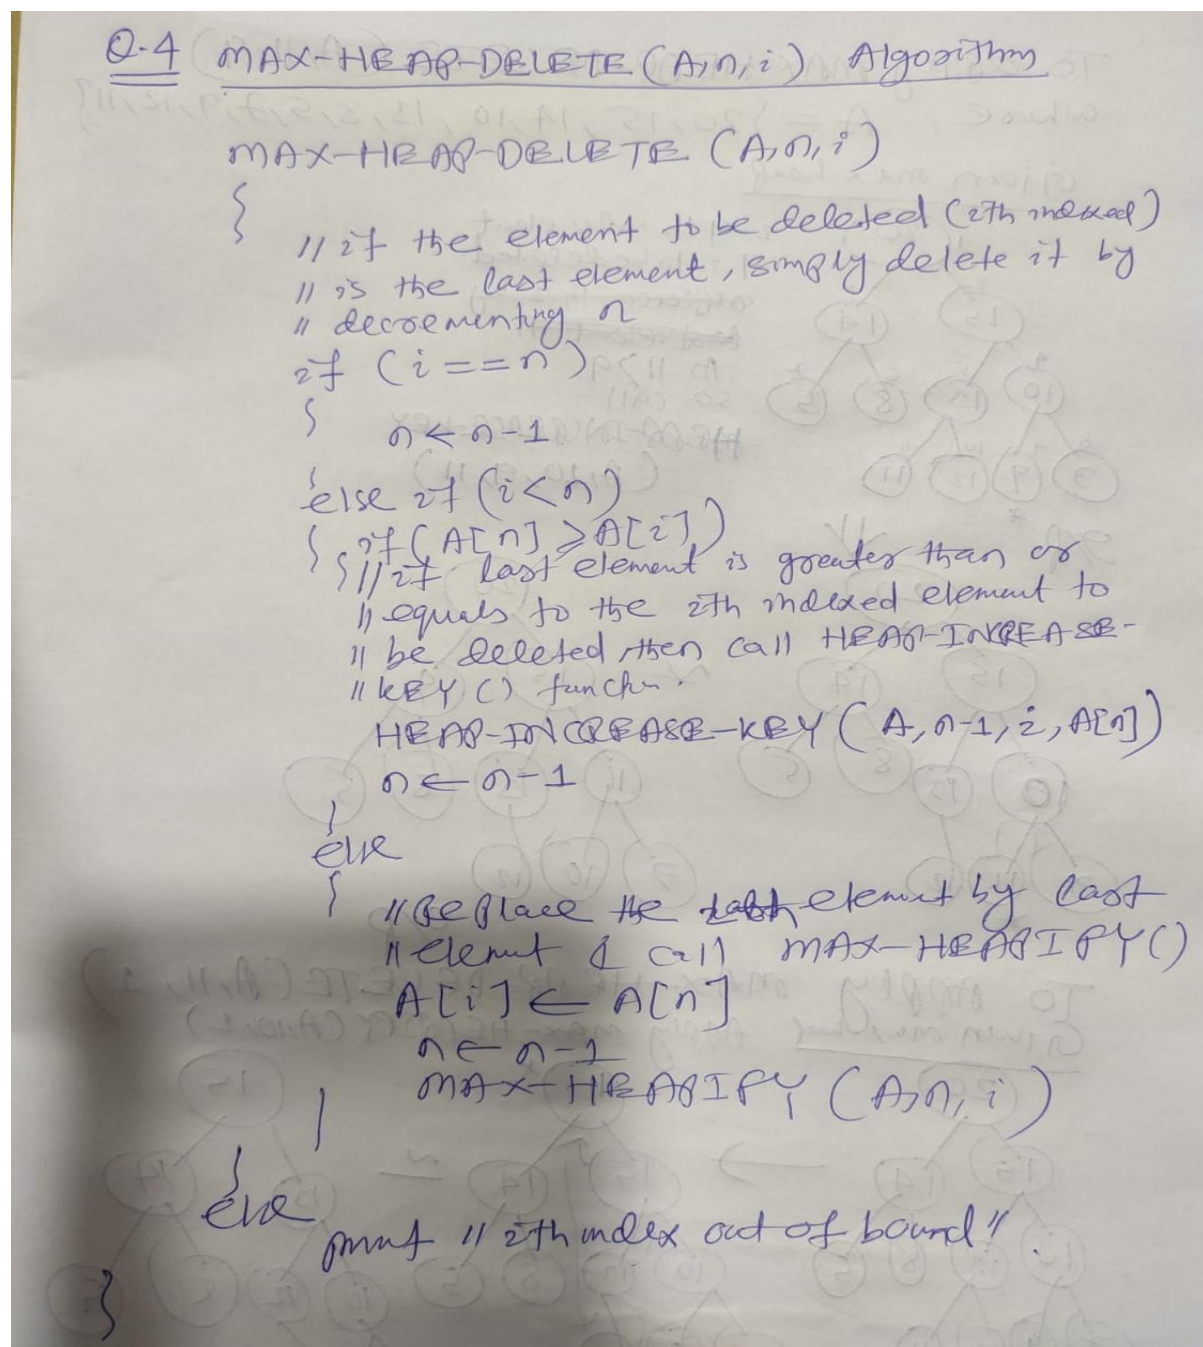 Q-4 MAX-HEAP-DELETE (A,n,i) Algorithm
MAX-HEAP-DELETE (A,n,i)
{
// if the element to be deleted (ith indexed)
// is the last element, simply delete it by
// decrementing n
if (i==n)
{ n ← n-1
}
else if (i<n)
{ if (A[n] ≥ A[i])
{ // if last element is greater than or
// equals to the ith indexed element to
// be deleted, then call HEAP-INCREASE-
// KEY ()
HEAP-INCREASE-KEY (A, n-1, i, A[n])
n ← n-1
}
else
{ // Replace the element by last
// & call MAX-HEAPIFY()
A[i] ← A[n]
n ← n-1
MAX-HEAPIFY (A,n,i)
}
}
else
print "ith index out of bound".
}